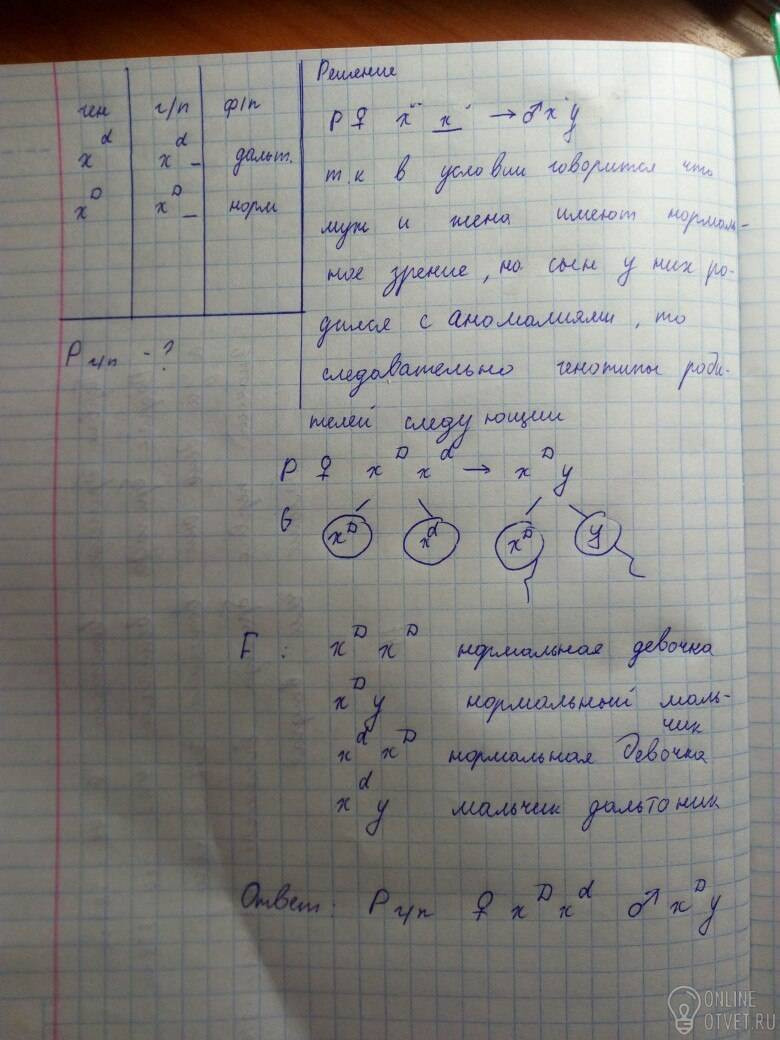 ген г/п ф/п
x^d x^d _ дальт.
x^D x^D _ норм
P г/п - ?
Решение
P ♀ x'' x' → ♂ x' y
т.к в условии говорится что
муж и жена имеют нормаль-
ное зрение, но сын у них ро-
дился с аномалиями, то
следавательно генотипы роди-
телей следующии
P ♀ x^D x^d → x^D y
G x^D x^d x^D y
F : x^D x^D нормальная девочка
x^D y нормальный маль-
чик
x^d x^D нормальная девочка
x^d y мальчик дальтоник
Ответ: P г/п ♀ x^D x^d ♂ x^D y
ONLINE
OTVET.RU